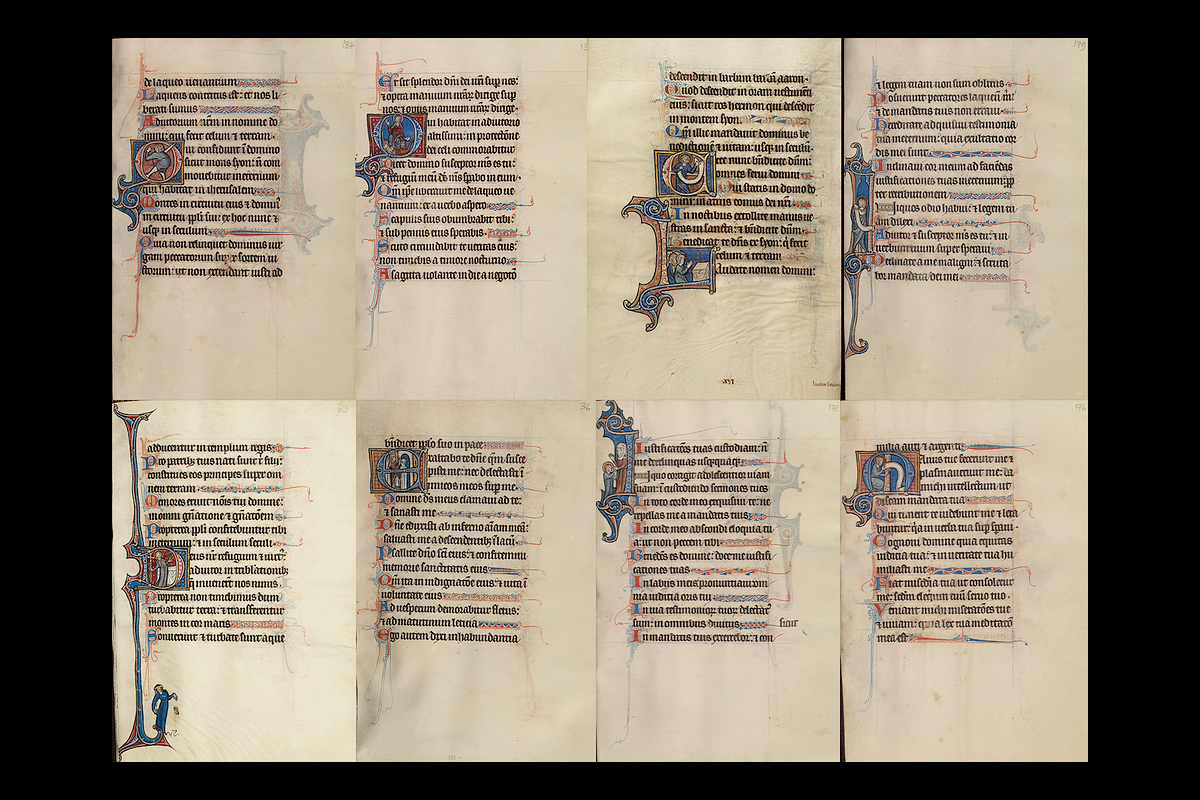 187
de laqueo venantium
Laqueus contritus est: et nos li
berati sumus
Adiutorium nrm in nomine do
mini: qui fecit celum et terram.
Qui confidunt in domino
sicut mons syon: non com
movebitur in eternum
qui habitat in iherusalem
Montes in circuitu eius et dominus
in circuitu ppli sui: ex hoc nunc et
usqz in seculum
Quia non relinquet dominus vir
gam peccatorum sup sortem iu
storum: ut non extendant iusti ad
Et sit splendor dni dei nri sup nos:
et opera manuum nrarum dirige sup
nos: et opus manuum nrarum dirige.
Qui habitat in adiutorio
altissimi: in protectione
dei celi commorabitur
Dicet domino susceptor meus es tu:
et refugium meum ds ms spabo in eum.
Qm ipe liberavit me de laqueo ve
nantium: et a verbo aspero
Scapulis suis obumbrabit tibi:
et sub pennis eius sperabis.
Scuto circumdabit te veritas eius:
non timebis a timore nocturno
A sagitta volante in die a negotio
descendit in barbam barbam aaron.
Quod descendit in oram vestimenti
eius: sicut ros hermon qui descendit
in montem syon.
Qm illic mandavit dominus be
nedictionem et vitam: usqz in seculum.
Ecce nunc bndicite dnm:
omnes servi domini
Qui statis in domo do
mini: in atriis domus dei nri
In noctibus extollite manus ve
stras in sancta: et bndicite dnm.
Benedicat te dns ex syon: qui fecit
celum et terram
Laudate nomen domini:
XVI
179
et legem tuam non sum oblitus.
Posuerunt peccatores laqueum mi:
et de mandatis tuis non erravi.
Hereditate adquisivi testimonia
tua in eternum: quia exultatio cor
dis mei sunt
Inclinavi cor meum ad faciendas
iustificationes tuas in eternum: pp
ter retributionem
Iniquos odio habui: et legem tu
am dilexi
Adiutor et susceptor ms es tu: et in
verbum tuum super speravi
Declinate a me maligni: et scruta
bor mandata dei mei
adducentur in templum regis
Pro patribus tuis nati sunt tibi filii:
constitues eos principes super om
nem terram
Memores erunt nominis tui domine:
in omni generatione et gnatoem
Propterea ppli confitebuntur tibi
in eternum: et in seculum seculi.
Deus nr refugium et virtus:
adiutor in tribulationibus
que invenerunt nos nimis.
Propterea non timebimus dum
turbabitur terra: et transferentur
montes in cor maris
Sonuerunt et turbate sunt aque
36
bndicet pplo suo in pace
Exaltabo te dne qm susce
pisti me: nec delectasti i
nimicos meos sup me.
Domine ds meus clamavi ad te:
et sanasti me
Dne eduxisti ab inferno aiam meam:
salvasti me a descendentibus in lacum.
Psallite dno sancti eius: et confitemini
memorie sanctitatis eius
Qm ira in indignatoe eius: et vita i
voluntate eius
Ad vesperum demorabitur fletus:
et ad matutinum leticia
Ego autem dixi in habundantia
171
Iustificatoes tuas custodiam: n
me derelinquas usquequaqz
In quo corrigit adolescentior viam
suam: in custodiendo sermones tuos
In toto corde meo exquisivi te: ne
repellas me a mandatis tuis
In corde meo abscondi eloquia tu
a: ut non peccem tibi
Benedictus es domine: doce me iustifi
cationes tuas
In labiis meis pronuntiavi om
nia iudicia oris tui
In via testimoniorum tuorum delectatus
sum: in omnibus divitiis sicut
In mandatis tuis exercebor: et con
176
milia auri et argenti
Manus tue fecerunt me et
plasmaverunt me: da
michi intellectum ut
discam mandata tua
Qui timent te videbunt me et leta
buntur: qa in verba tua sup speravi.
Cognovi domine quia equitas
iudicia tua: et in veritate tua hu
miliasti me
Fiat misericordia tua ut consoletur
me: scdm eloquium tuum servo tuo.
Veniant michi miseratoes tue
et vivam: quia lex tua meditatio
mea est